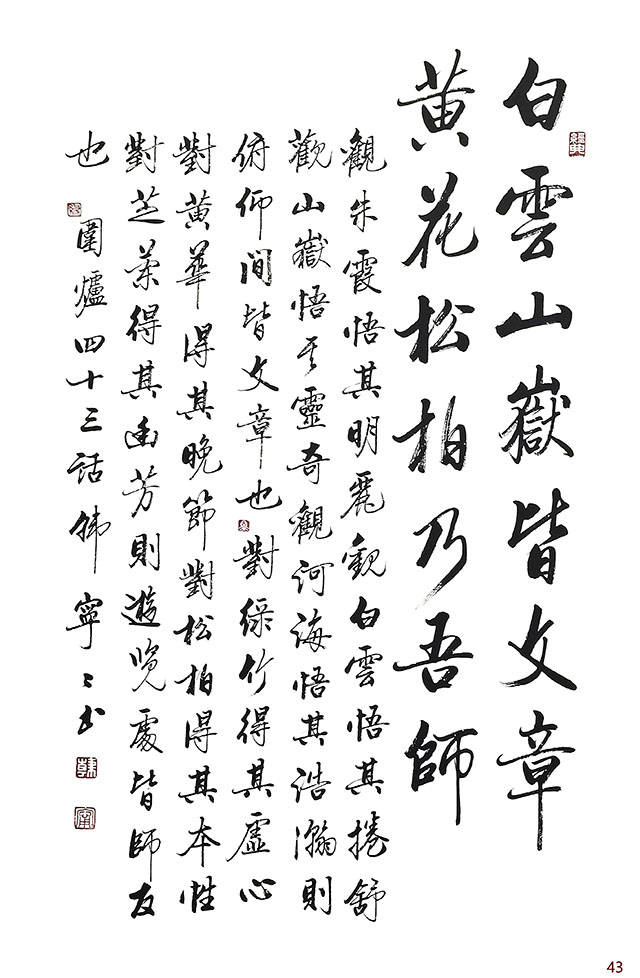 白雲山嶽皆文章
黄花松柏乃吾師
觀朱霞悟其明麗觀白雲悟其捲舒
觀山嶽悟其靈奇觀河海悟其浩瀚則
俯仰間皆文章也對綠竹得其虛心
對黄華得其晚節對松柏得其本性
對芝蘭得其幽芳則遊览處皆師友
也
圍爐四十三話韩寧寧书
43